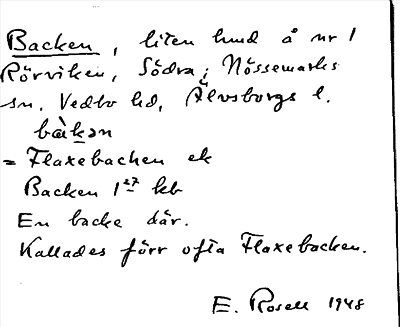 Backen, liten lund å nr 1
Rörviken, Södra; Nössemarks
sn. Vedbo hd, Älvsborgs l.
bàkən
= Flaxebacken ek
Backen 1²⁷ kb
En backe där.
Kallades förr ofta Flaxebacken.
E. Rosell 1948